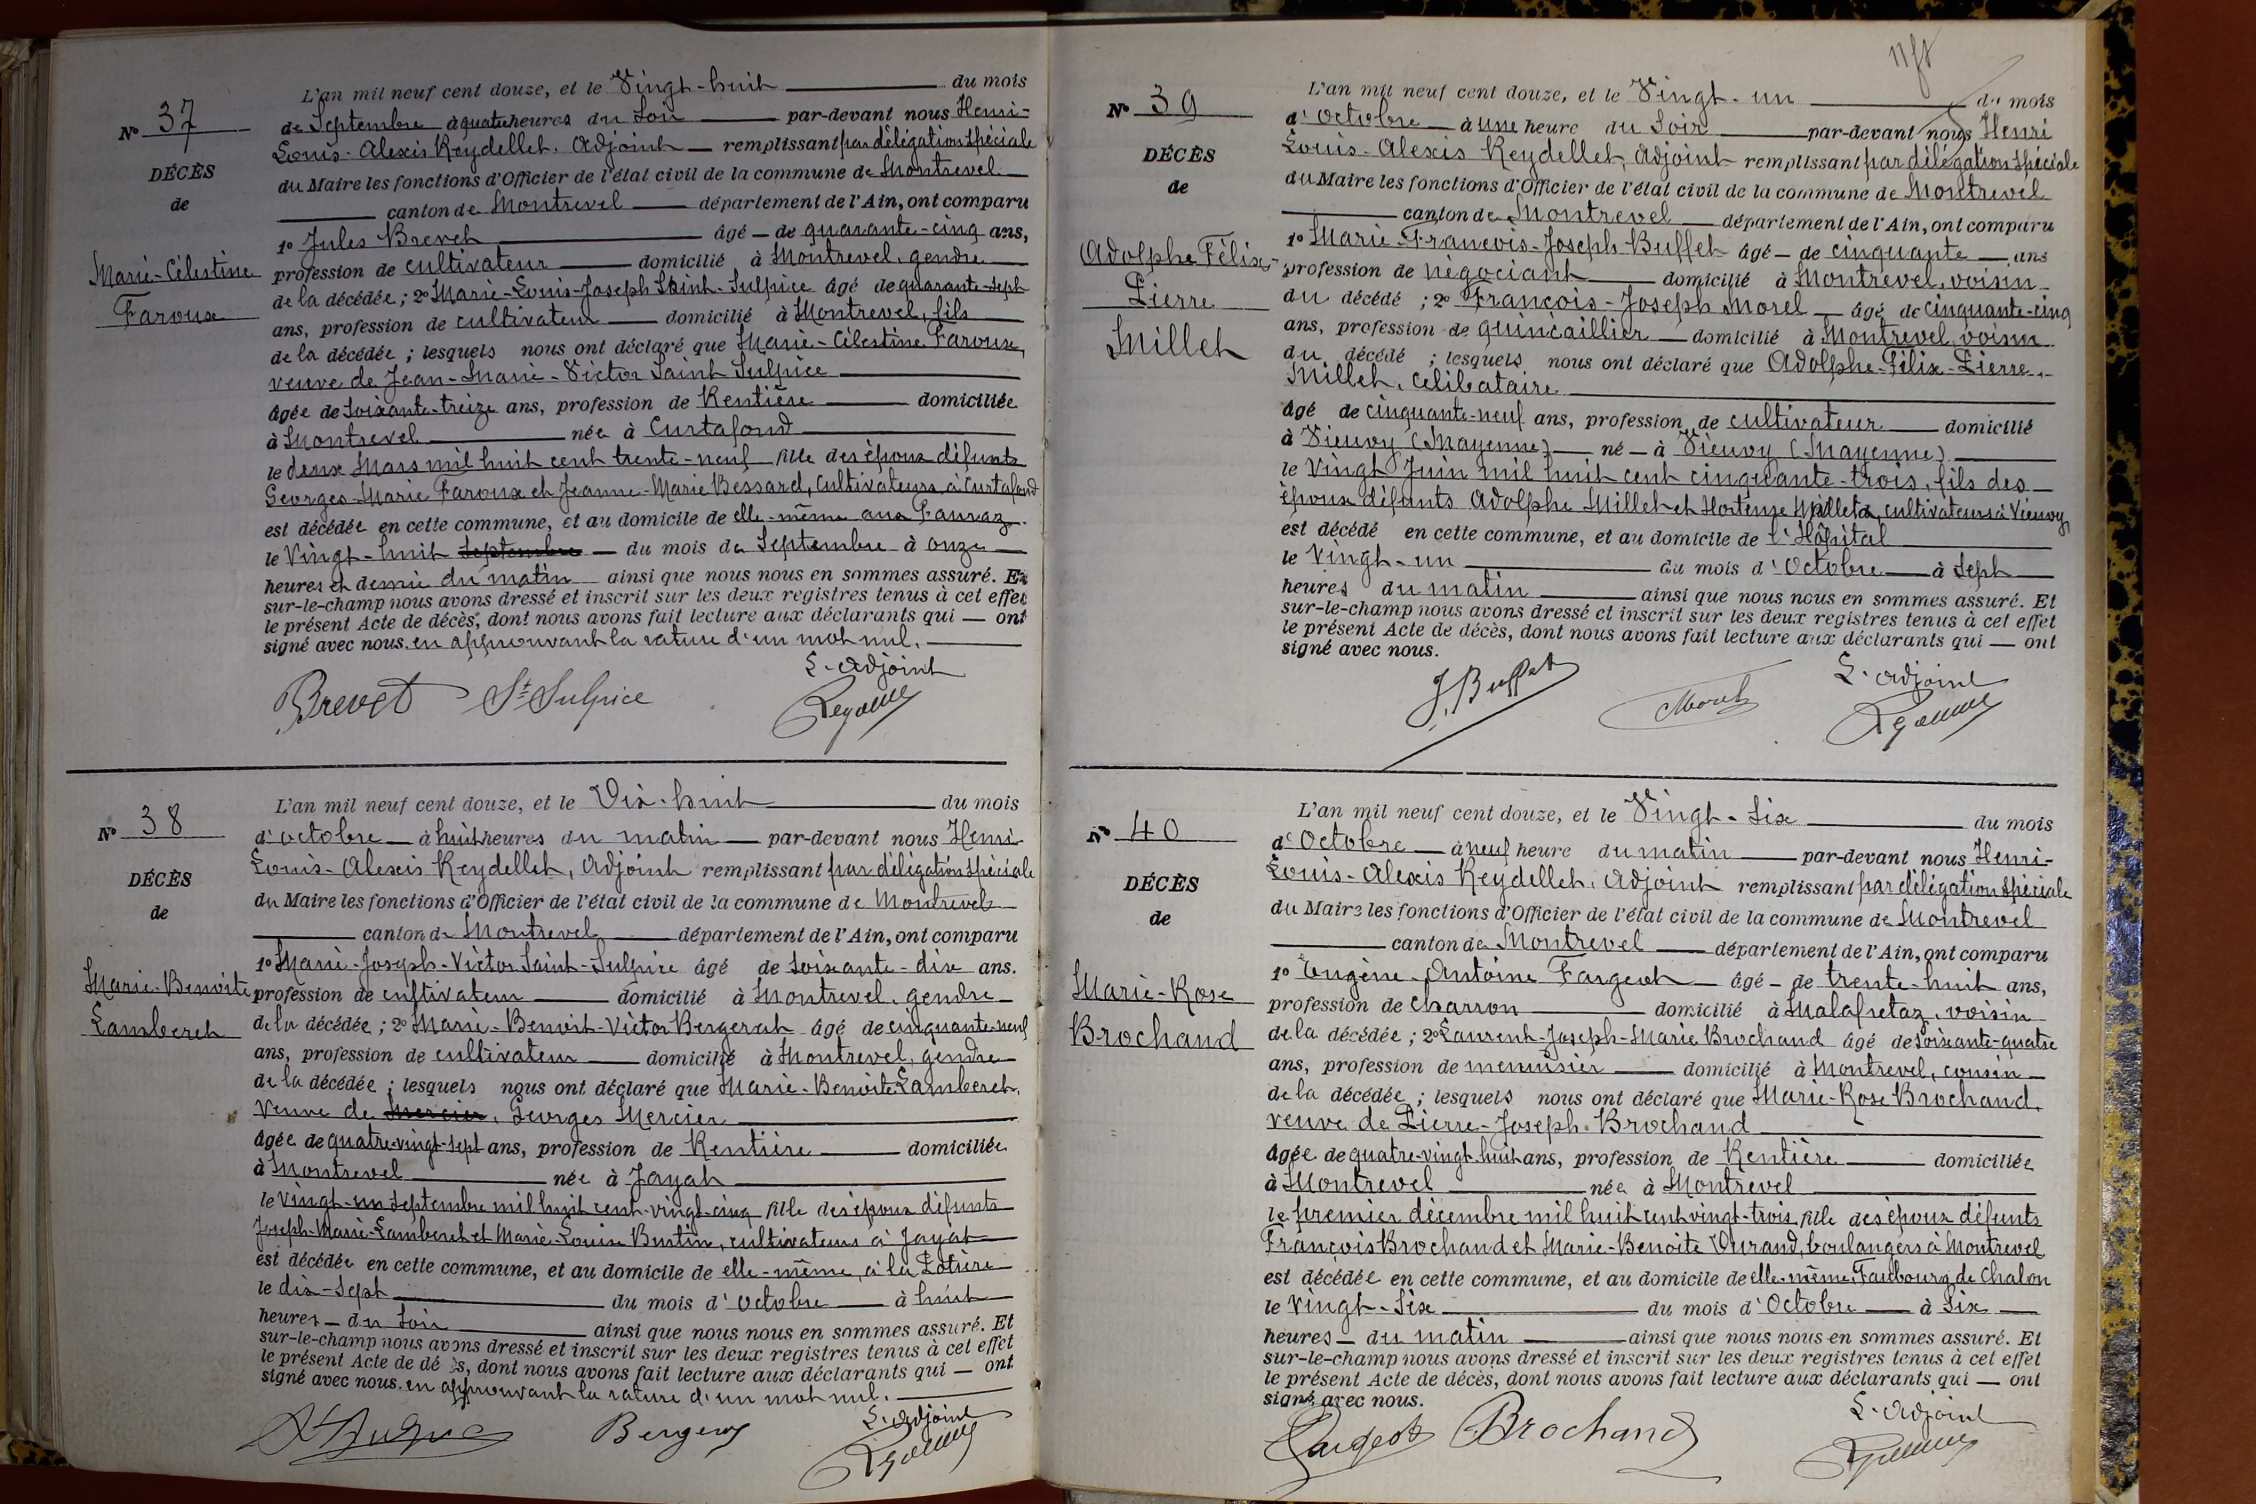 L'an mil neuf cent douze, et le Vingt-huit du mois
N° 37
de Septembre à quatre heures du Soir par-devant nous Henri-
Louis-Alexis Reydellet, Adjoint remplissant par délégation Spéciale
DÉCÈS
du Maire les fonctions d'Officier de l'état civil de la commune de Montrevel
de
canton de Montrevel département de l'Ain, ont comparu
1° Jules Brevet âgé de quarante-cinq ans,
Marie-Célestine
profession de cultivateur domicilié à Montrevel, gendre
de la décédée ; 2° Marie-Louis-Joseph Saint-Sulpice âgé de quarante-sept
Faroux
ans, profession de cultivateur domicilié à Montrevel, fils
de la décédée ; lesquels nous ont déclaré que Marie-Célestine Faroux,
veuve de Jean-Marie-Victor Saint Sulpice
âgée de soixante-treize ans, profession de Rentière domiciliée
à Montrevel née à Curtafond
le deux Mars mil huit cent trente-neuf fille des époux défunts
Georges-Marie Faroux et Jeanne-Marie Bessard, cultivateurs à Curtafond
est décédée en cette commune, et au domicile de elle-même aux
le Vingt-huit Septembre du mois de Septembre à onze
heures et demie du matin ainsi que nous nous en sommes assuré. Et
sur-le-champ nous avons dressé et inscrit sur les deux registres tenus à cet effet
le présent Acte de décès, dont nous avons fait lecture aux déclarants qui ont
signé avec nous. en approuvant la rature d'un mot nul.
L'adjoint
Brevet St Sulpice
L'an mil neuf cent douze, et le Dix-huit du mois
N° 38
d'octobre à huit heures du matin par-devant nous Henri-
Louis-Alexis Reydellet, Adjoint remplissant par délégation Spéciale
DÉCÈS
du Maire les fonctions d'Officier de l'état civil de la commune de Montrevel
de
canton de Montrevel département de l'Ain, ont comparu
1° Marie-Joseph-Victor Saint-Sulpice âgé de soixante-dix ans.
Marie-Benoite
profession de cultivateur domicilié à Montrevel, gendre
Lamberet
de la décédée ; 2° Marie-Benoit-Victor Bergerat âgé de cinquante-neuf
ans, profession de cultivateur domicilié à Montrevel, gendre
de la décédée ; lesquels nous ont déclaré que Marie-Benoite Lamberet,
Veuve de Mercier, Georges Mercier
âgée de quatre-vingt-sept ans, profession de Rentière domiciliée
à Montrevel née à Jayat
le vingt-un septembre mil huit cent-vingt-cinq fille des époux défunts
Joseph-Marie-Lamberet et Marie-Louise Burtin, cultivateurs à Jayat
est décédée en cette commune, et au domicile de elle-même, à la Potière
le dix-sept du mois d'octobre à huit
heures du Soir ainsi que nous nous en sommes assuré. Et
sur-le-champ nous avons dressé et inscrit sur les deux registres tenus à cet effet
le présent Acte de dé ès, dont nous avons fait lecture aux déclarants qui ont
signé avec nous. en approuvant la rature d'un mot nul.
L'adjoint
L'an mil neuf cent douze, et le Vingt-un du mois
N° 39
d'octobre à une heure du Soir par-devant nous Henri
Louis-Alexis Reydellet, Adjoint remplissant par délégation Spéciale
DÉCÈS
du Maire les fonctions d'Officier de l'état civil de la commune de Montrevel
de
canton de Montrevel département de l'Ain, ont comparu
1° Marie-François-Joseph-Buffet âgé de cinquante ans
Adolphe Félix-
profession de négociant domicilié à Montrevel, voisin
Pierre
du décédé ; 2° François-Joseph Morel âgé de cinquante-cinq
ans, profession de quincaillier domicilié à Montrevel, voisin
Millet
du décédé ; lesquels nous ont déclaré que Adolphe-Félix-Pierre
Millet, célibataire
âgé de cinquante-neuf ans, profession de cultivateur domicilié
à Vieuvy (Mayenne) né à Vieuvy (Mayenne)
le Vingt Juin mil huit cent cinquante-trois, fils des
époux défunts Adolphe Millet et Hortense, cultivateurs à Vieuvy
est décédé en cette commune, et au domicile de l'Hôpital
le Vingt-un du mois d'Octobre à Sept
heures du matin ainsi que nous nous en sommes assuré. Et
sur-le-champ nous avons dressé et inscrit sur les deux registres tenus à cet effet
le présent Acte de décès, dont nous avons fait lecture aux déclarants qui ont
signé avec nous.
L'adjoint
J. Buffet
L'an mil neuf cent douze, et le Vingt-Six du mois
N° 40
d'Octobre à neuf heure du matin par-devant nous Henri-
Louis-Alexis Reydellet, Adjoint remplissant par délégation Spéciale
DÉCÈS
du Maire les fonctions d'Officier de l'état civil de la commune de Montrevel
de
canton de Montrevel département de l'Ain, ont comparu
1° Eugène-Antoine Fargeot âgé de trente-huit ans,
Marie-Rose
profession de charron domicilié à Malafretaz, voisin
Brochand
de la décédée ; 2° Laurent-Joseph-Marie Brochand âgé de soixante-quatre
ans, profession de menuisier domicilié à Montrevel, cousin
de la décédée ; lesquels nous ont déclaré que Marie-Rose Brochand,
veuve de Pierre-Joseph-Brochand
âgée de quatre-vingt-huit ans, profession de Rentière domiciliée
à Montrevel née à Montrevel
le premier décembre mil huit cent vingt-trois fille des époux défunts
François Brochand et Marie-Benoite Durand, boulangers à Montrevel
est décédée en cette commune, et au domicile de elle-même, Faubourg de Chalon
le Vingt-Six du mois d'Octobre à Six
heures du matin ainsi que nous nous en sommes assuré. Et
sur-le-champ nous avons dressé et inscrit sur les deux registres tenus à cet effet
le présent Acte de décès, dont nous avons fait lecture aux déclarants qui ont
signé avec nous.
L'adjoint
Fargeot Brochand